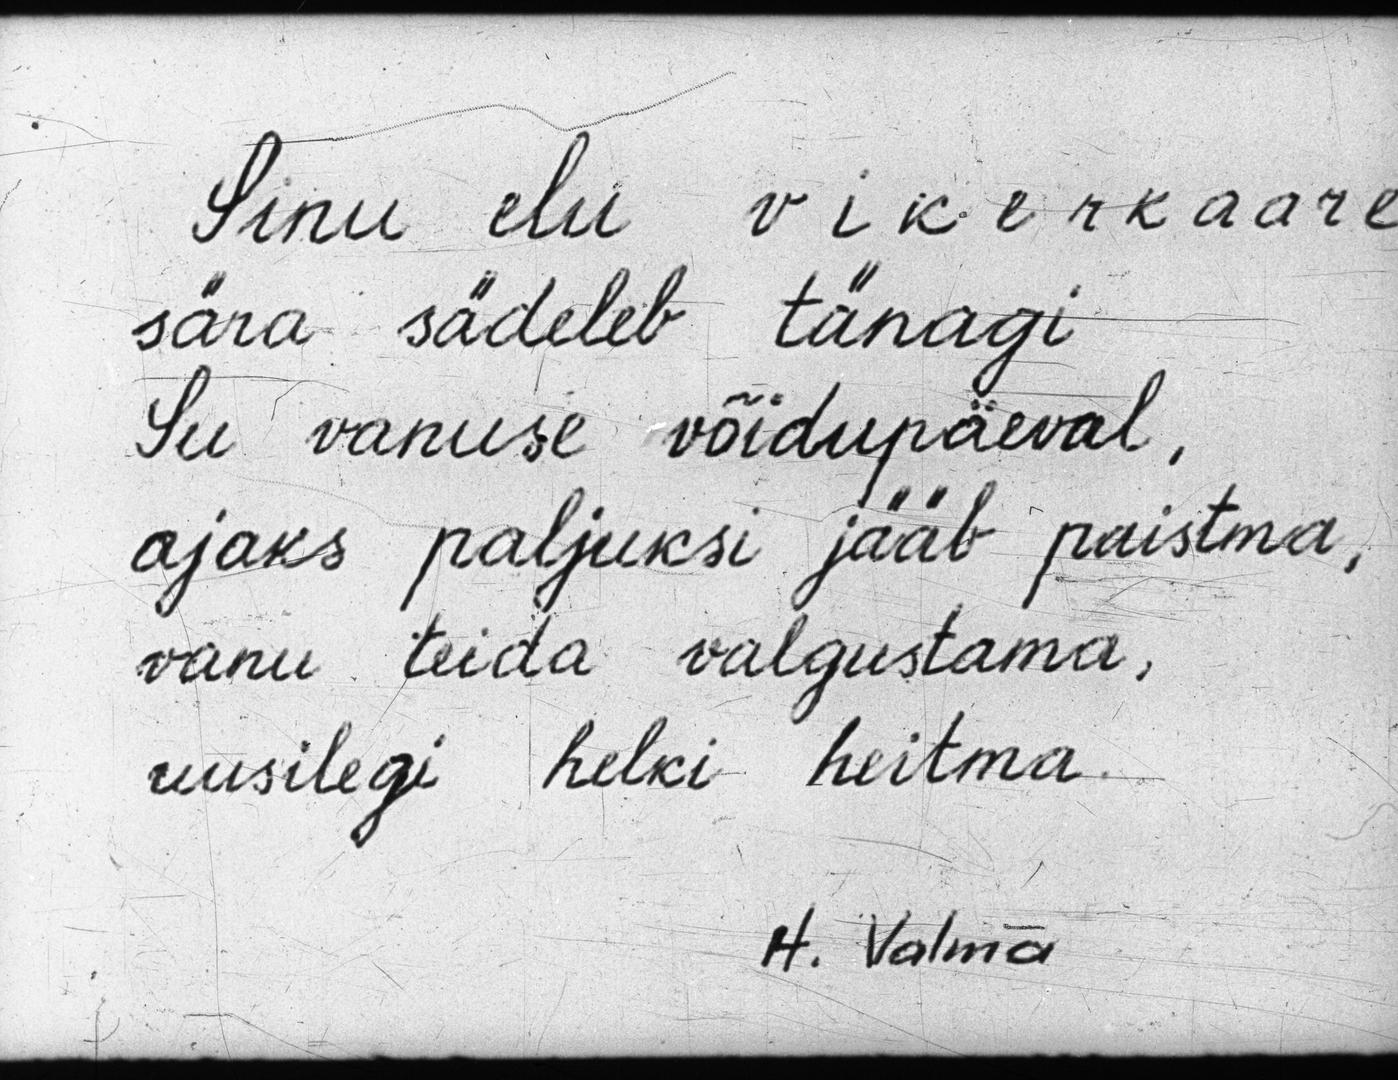 Sinu elu vikerkaare
sära sädeleb tänagi
Su vanuse võidupäeval,
ajaks paljuksi jääb paistma,
vanu teida valgustama,
uusilegi helki heitma
H. Valma